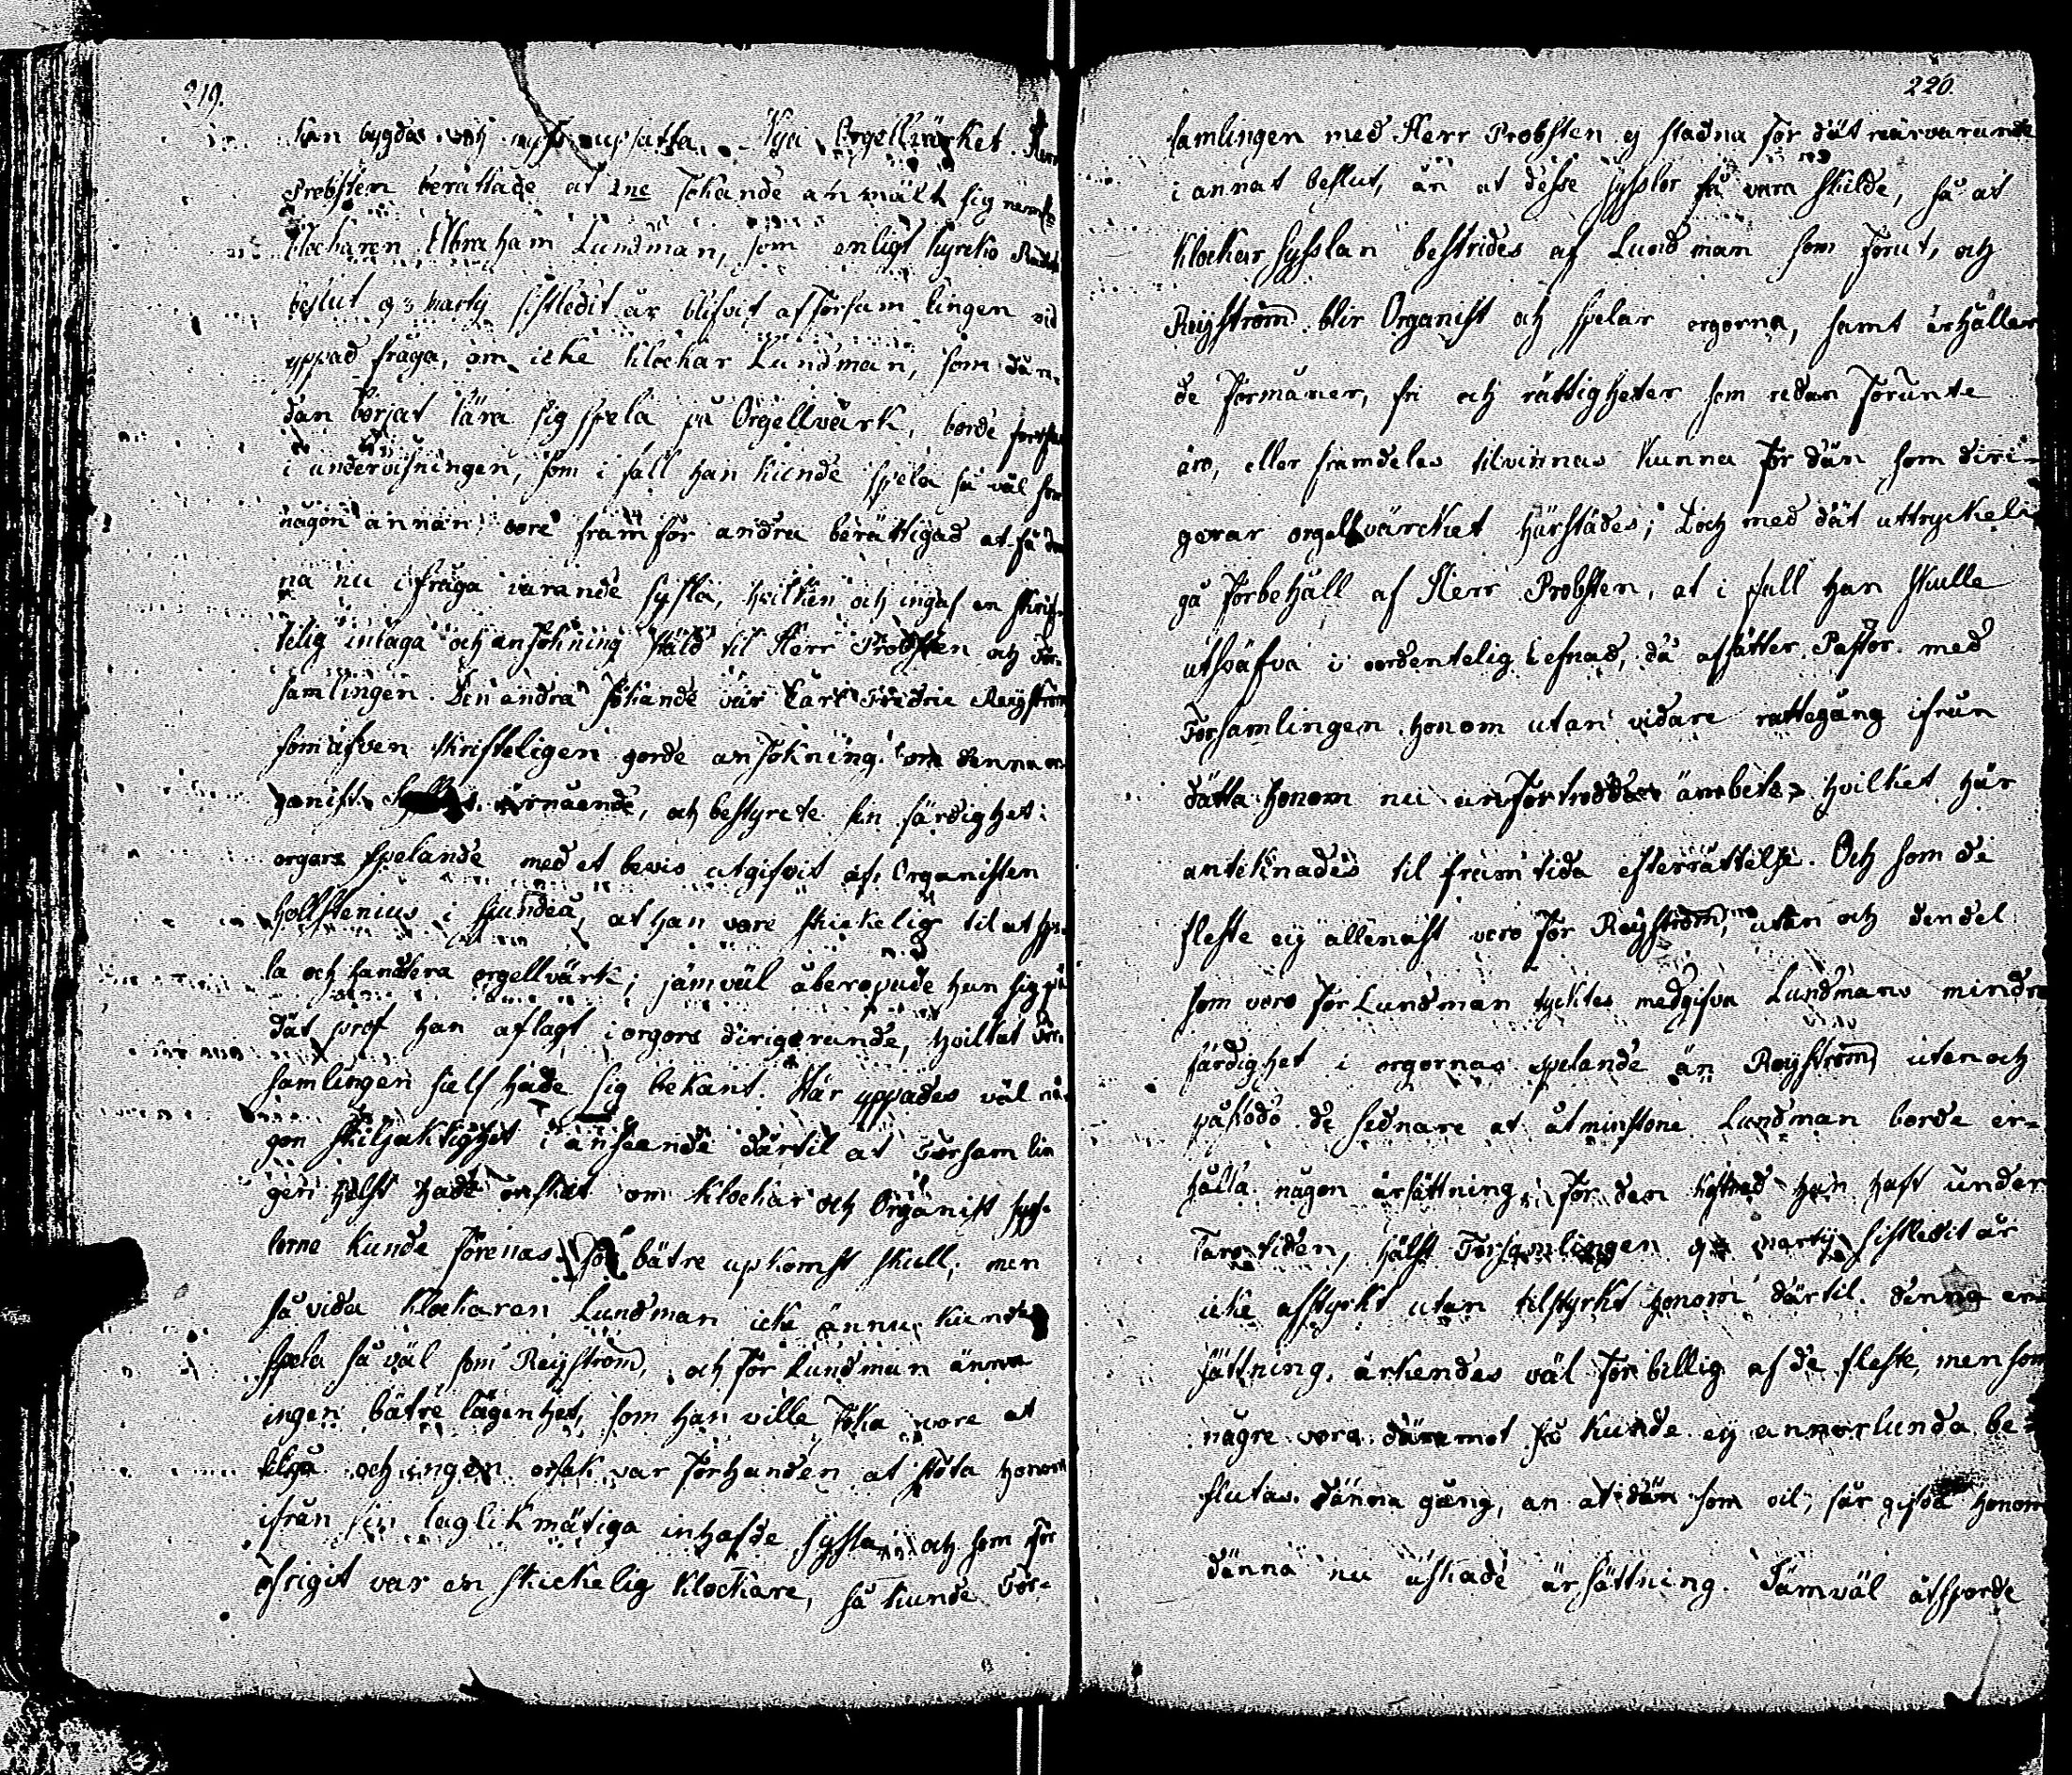 219.
kan bygdas och uppsatta Nya Orgellvärket. Herr
Probsten berättade at 2ne sökande anmält sig
Klockaren Abraham Lundman, som enligt kyrcko Råds
beslut 9:3 Martij sistledit år blifvit af församlingen vid
yppad fråga, om icke klockar Lundman, som dän
dan börjat lära sig spela på Orgellvärk, borde
i undervisningen, som i fall han kunde spela så väl som
någon annan vore framför andra berättigad at få den
na nu i fråga varande sysla, hvilken och ingaf en skrift
telig inlaga och ansökning stäld til Herr Probsten och För
samlingen. Den andra sökande var Carl Fredric Reyström
som äfven skrifteligen gorde ansökning om denna or
ganist ärnående, och bestyrcte sin färdighet i
orgors spelande med et bevis utgifvit af Organisten
hollstenius i Sjundeå, at han vore skickelig til at spe
la och handtera orgellvärk; jämväl åberopade han sig på
dät prof han aflagt i orgors dirigerande, hvilket För
samlingen sielf hade sig bekant. Här yppades väl nå
gon skiljaktighet i anseende därtil at Församlin
gen hälst hade önskat om klockar och Organist syss
lorne kunde förenas för bätre upkomst skull, men
så vida klockaren Lundman icke ännu kunde
spela så väl som Reyström, och för Lundman ännu
ingen bätre lägenhet, som han ville söka vore at
tilgå och ingen orsak var förhanden at stöta honom
ifrån sin laglikmätiga inhafde sysla, och som för
öfrigit var en skickelig klockare, så kunde För-
220.
samlingen med Herr Probsten ej stadna för dät närvarande
i annat beslut, än at desse sysslor få vara skilde, så at
klockar sysslan bestrides af Lundman som förut, och
Reyström blir Organist och spelar orgorna, samt erhåller
de förmåner, fri och rättigheter som redan förunte
äro, eller framdeles tilvinnas kunna för dän som diri-
gerar orgellvärcket härstädes; doch med dät uttryckeli
ga förbehåll af Herr Probsten, at i fall han skulle
utsväfva i oordentelig Lefnad, då afsätter Pastor med
Församlingen honom utan vidare rättegång ifrån
dätta honom nu anförtrodde ämbete, hvilket här
anteknades til framtida efterrättelse. Och som de
fleste eij allenast voro för Reyström, utan och dendel
som voro för Lundman tycktes medgifva Lundmans mindre
färdighet i orgornas spelande än Reyström, utan och
påstodo de sednare at åtminstone Lundman borde er-
hålla någon ärsättning för den kostnad han haft under
Läro tiden, hälst Församlingen 9:3 Martij sistledit år
icke afstyrkt utan tilstyrkt honom därtil. denna er-
sättning ärkendes väl för billig af de fleste, men som
någre vora däremot så kunde ej annorlunda be-
slutas dänna gång, än at dän som vil, får gifva honom
dänna nu äskade ärsättning. Jämväl åtsporde